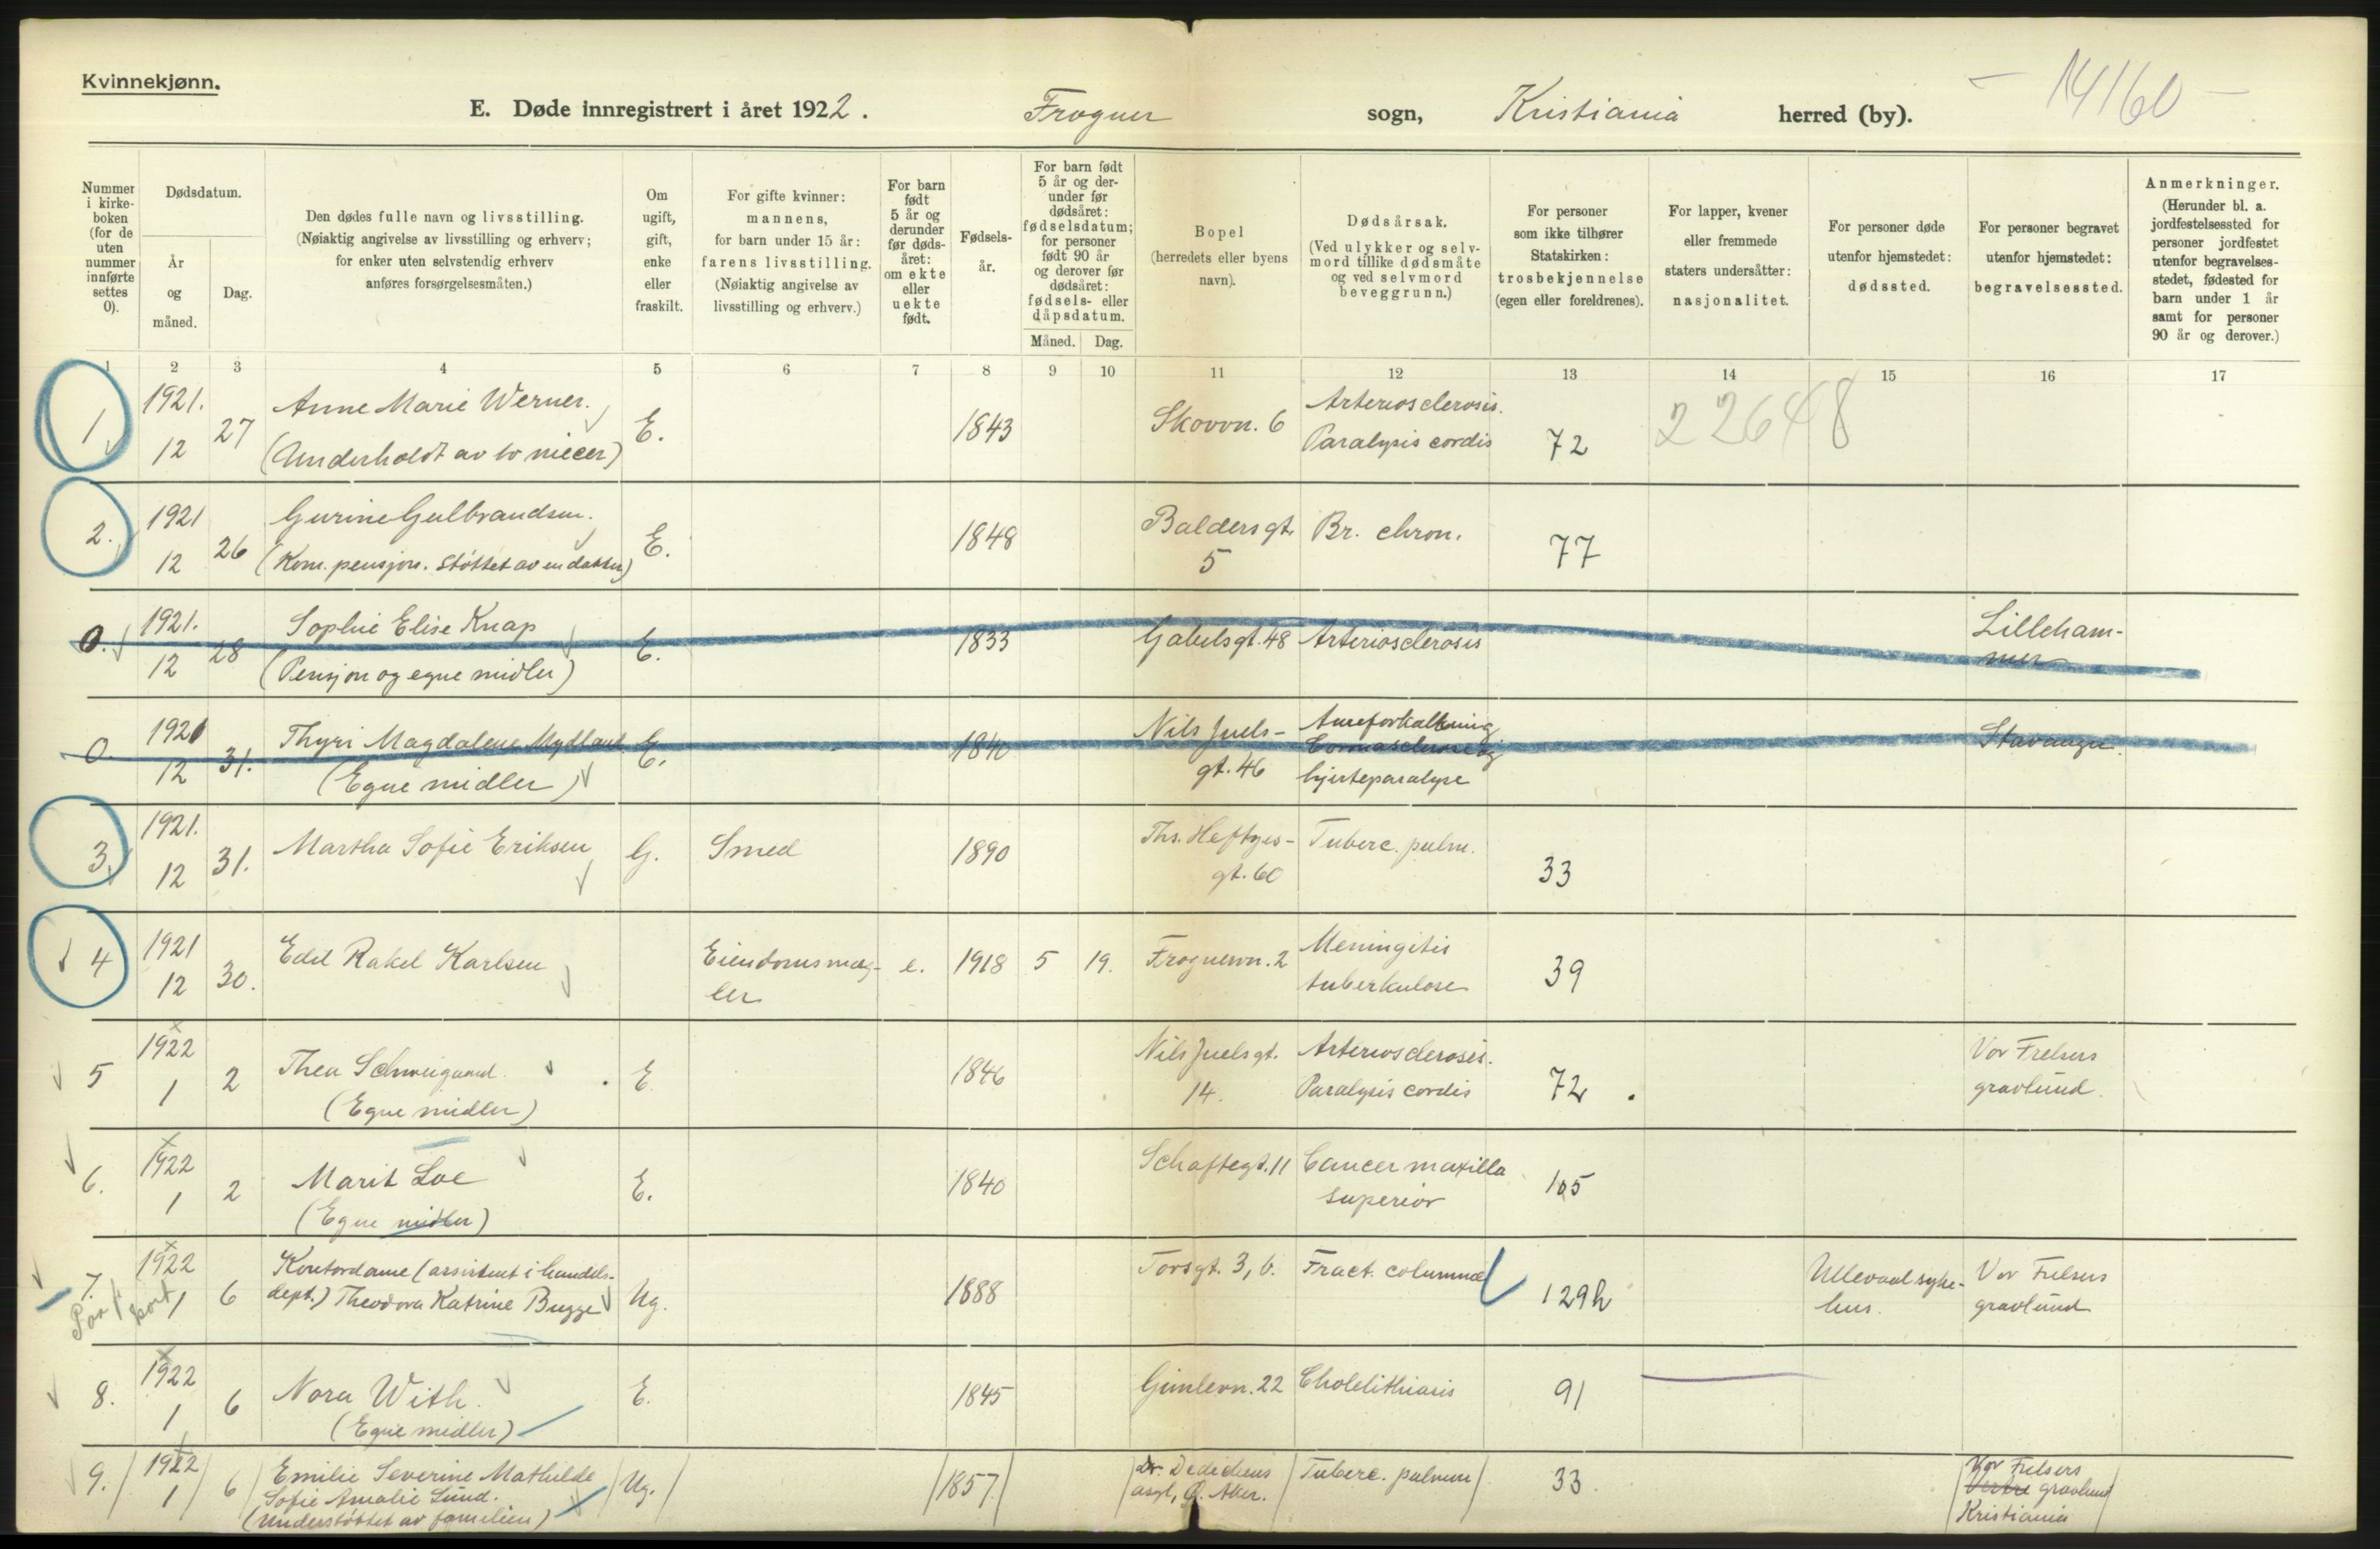 Kvinnekjønn.
E. Døde innregistrert i året 1922. Frogner sogn, Kristiania herred (by).
14160
Nummer i kirkeboken (for de uten nummer innførte settes 0).
Dødsdatum.
År og måned.
Dag.
Den dødes fulle navn og livsstilling.
(Nøiaktig angivelse av livsstilling og erhverv;
for enker uten selvstendig erhverv
anføres forsørgelsesmåten.)
Om
ugift,
gift,
enke
eller
fraskilt.
For gifte kvinner:
mannens,
for barn under 15 år:
farens livsstilling.
(Nøiaktig angivelse av
livsstilling og erhverv.)
For barn
født
5 år og
derunder
før døds-
året:
om ekte
eller
uekte
født.
Fødsels-
år.
For barn født
5 år og der-
under før
dødsåret:
fødselsdatum;
for personer
født 90 år
og derover før
dødsåret:
fødsels- eller
dåpsdatum.
Måned. Dag.
Bopel
(herredets eller byens
navn).
Dødsårsak.
(Ved ulykker og selv-
mord tillike dødsmåte
og ved selvmord
beveggrunn.)
For personer
som ikke tilhører
Statskirken:
trosbekjennelse
(egen eller foreldrenes).
For lapper, kvener
eller fremmede
staters undersåtter:
nasjonalitet.
For personer døde
utenfor hjemstedet:
dødssted.
For personer begravet
utenfor hjemstedet:
begravelsessted.
Anmerkninger.
(Herunder bl. a.
jordfestelsessted for
personer jordfestet
utenfor begravelses-
stedet, fødested for
barn under 1 år
samt for personer
90 år og derover.)
1 2 3 4 5 6 7 8 9 10 11 12 13 14 15 16 17
1921. Anne Marie Werner. Arteriosclerosis.
1 12 27 (Underholdt av to niecer) E. 1843 Skovvn. 6 Paralysis cordis 72 22648
1921 Gurine Gulbrandsen. Baldersgt. Br. chron.
2. 12 26 (Kom. pensjon. Støttet av en datter) E. 1848 5 77
1921. Sophie Elise Knap Lilleham-
0. 12 28 (Pensjon og egne midler) E. 1833 Gabelsgt. 48 Arteriosclerosis mer
1921 Thyri Magdalene Mydland Nils Juels- Aareforkalkning
0. 12 31. (Egne midler) E. 1840 gt. 46 hjerteparalyse Stavanger.
1921. Martha Sofie Eriksen Ths. Heftyes- Tuberc. pulm.
3. 12 31. G. Smed 1890 gt. 60 33
1921 Edel Rakel Karlsen Eiendomsmæg- Meningitis
4 12 30. ler e. 1918 5 19. Frognervn. 2 tuberkulose 39
1922 Thea Schweigaard. Nils Juelsgt. Arteriosclerosis. Vor Frelsers
5 1 2 (Egne midler) E 1846 14. Paralysis cordis 72 gravlund.
1922 Marit Loe Schaftegt. 11 Cancer maxilla
6. 1 2 (Egne midler) E. 1840 superior 105
1922 Kontordame (assistent i handels- Torsgt. 3, b. Fract. columnae Ullevaal syke- Vor Frelsers
7. 1 6 dept.) Theodora Katrine Bugge Ug. 1888 129h hus. gravlund
1922 Nora With.
8. 1 6 (Egne midler) E. 1845 Gimlevn. 22 Cholelithiasis 91
1922 Emilie Severine Mathilde Dr. Dedichens Tuberc. pulmon Vor Frelsers
9. 1 6 Sofie Amalie Lund. Ug. 1857 asyl, Ø. Aker. 33 Vestre gravlund
(Understøttet av familien) Kristiania